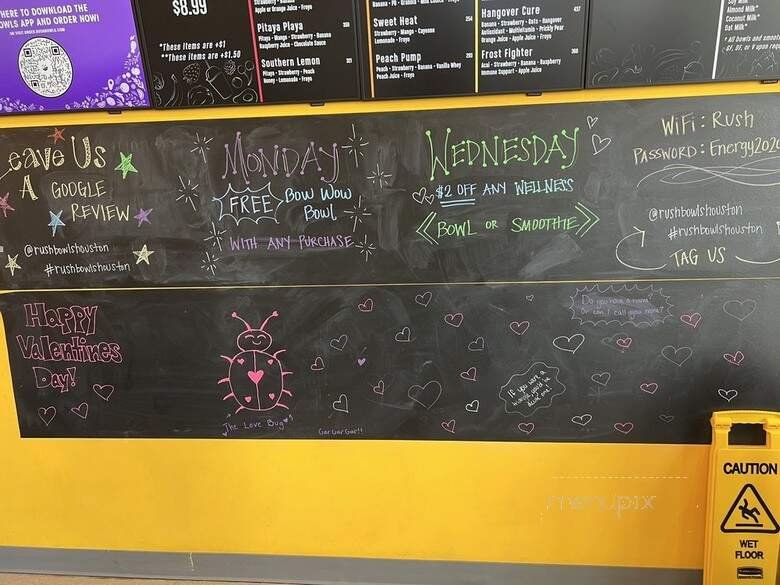 HERE TO DOWNLOAD THE
OWLS APP AND ORDER NOW!
$8.99
*These items are +$1
**These items are +$1.50
Apple or Orange Juice • Froyo
Pitaya Playa
Pitaya • Mango • Strawberry • Banana
Raspberry Juice • Chocolate Sauce
Southern Lemon
Pitaya • Strawberry • Peach
Honey • Lemonade • Froyo
Sweet Heat
Strawberry • Mango • Cayenne
Lemonade • Froyo
Peach Pump
Peach • Strawberry • Banana • Vanilla Whey
Peach Juice • Froyo
Hangover Cure
Strawberry • Banana • Oats • Hangover
Antioxidant • Multivitamin • Prickly Pear
Orange Juice • Apple Juice • Froyo
Frost Fighter
Acai • Strawberry • Banana • Raspberry
Immune Support • Apple Juice
Soy Milk*
Almond Milk*
Coconut Milk*
Oat Milk*
eave Us
A GOOGLE
REVIEW
@rushbowlshouston
#rushbowlshouston
MONDAY
FREE BOW WOW
BOWL
WITH ANY PURCHASE
WEDNESDAY
$2 OFF ANY WELLNESS
BOWL OR SMOOTHIE
WiFi: Rush
PASSWORD: Energy2020
@rushbowlshouston
#rushbowlshouston
TAG US
Happy
Valentines
Day!
The Love Bug
Gar Gar Gar!!
If you were a
Do you have a name?
Or can I call you mine?
CAUTION
WET
FLOOR
menupix